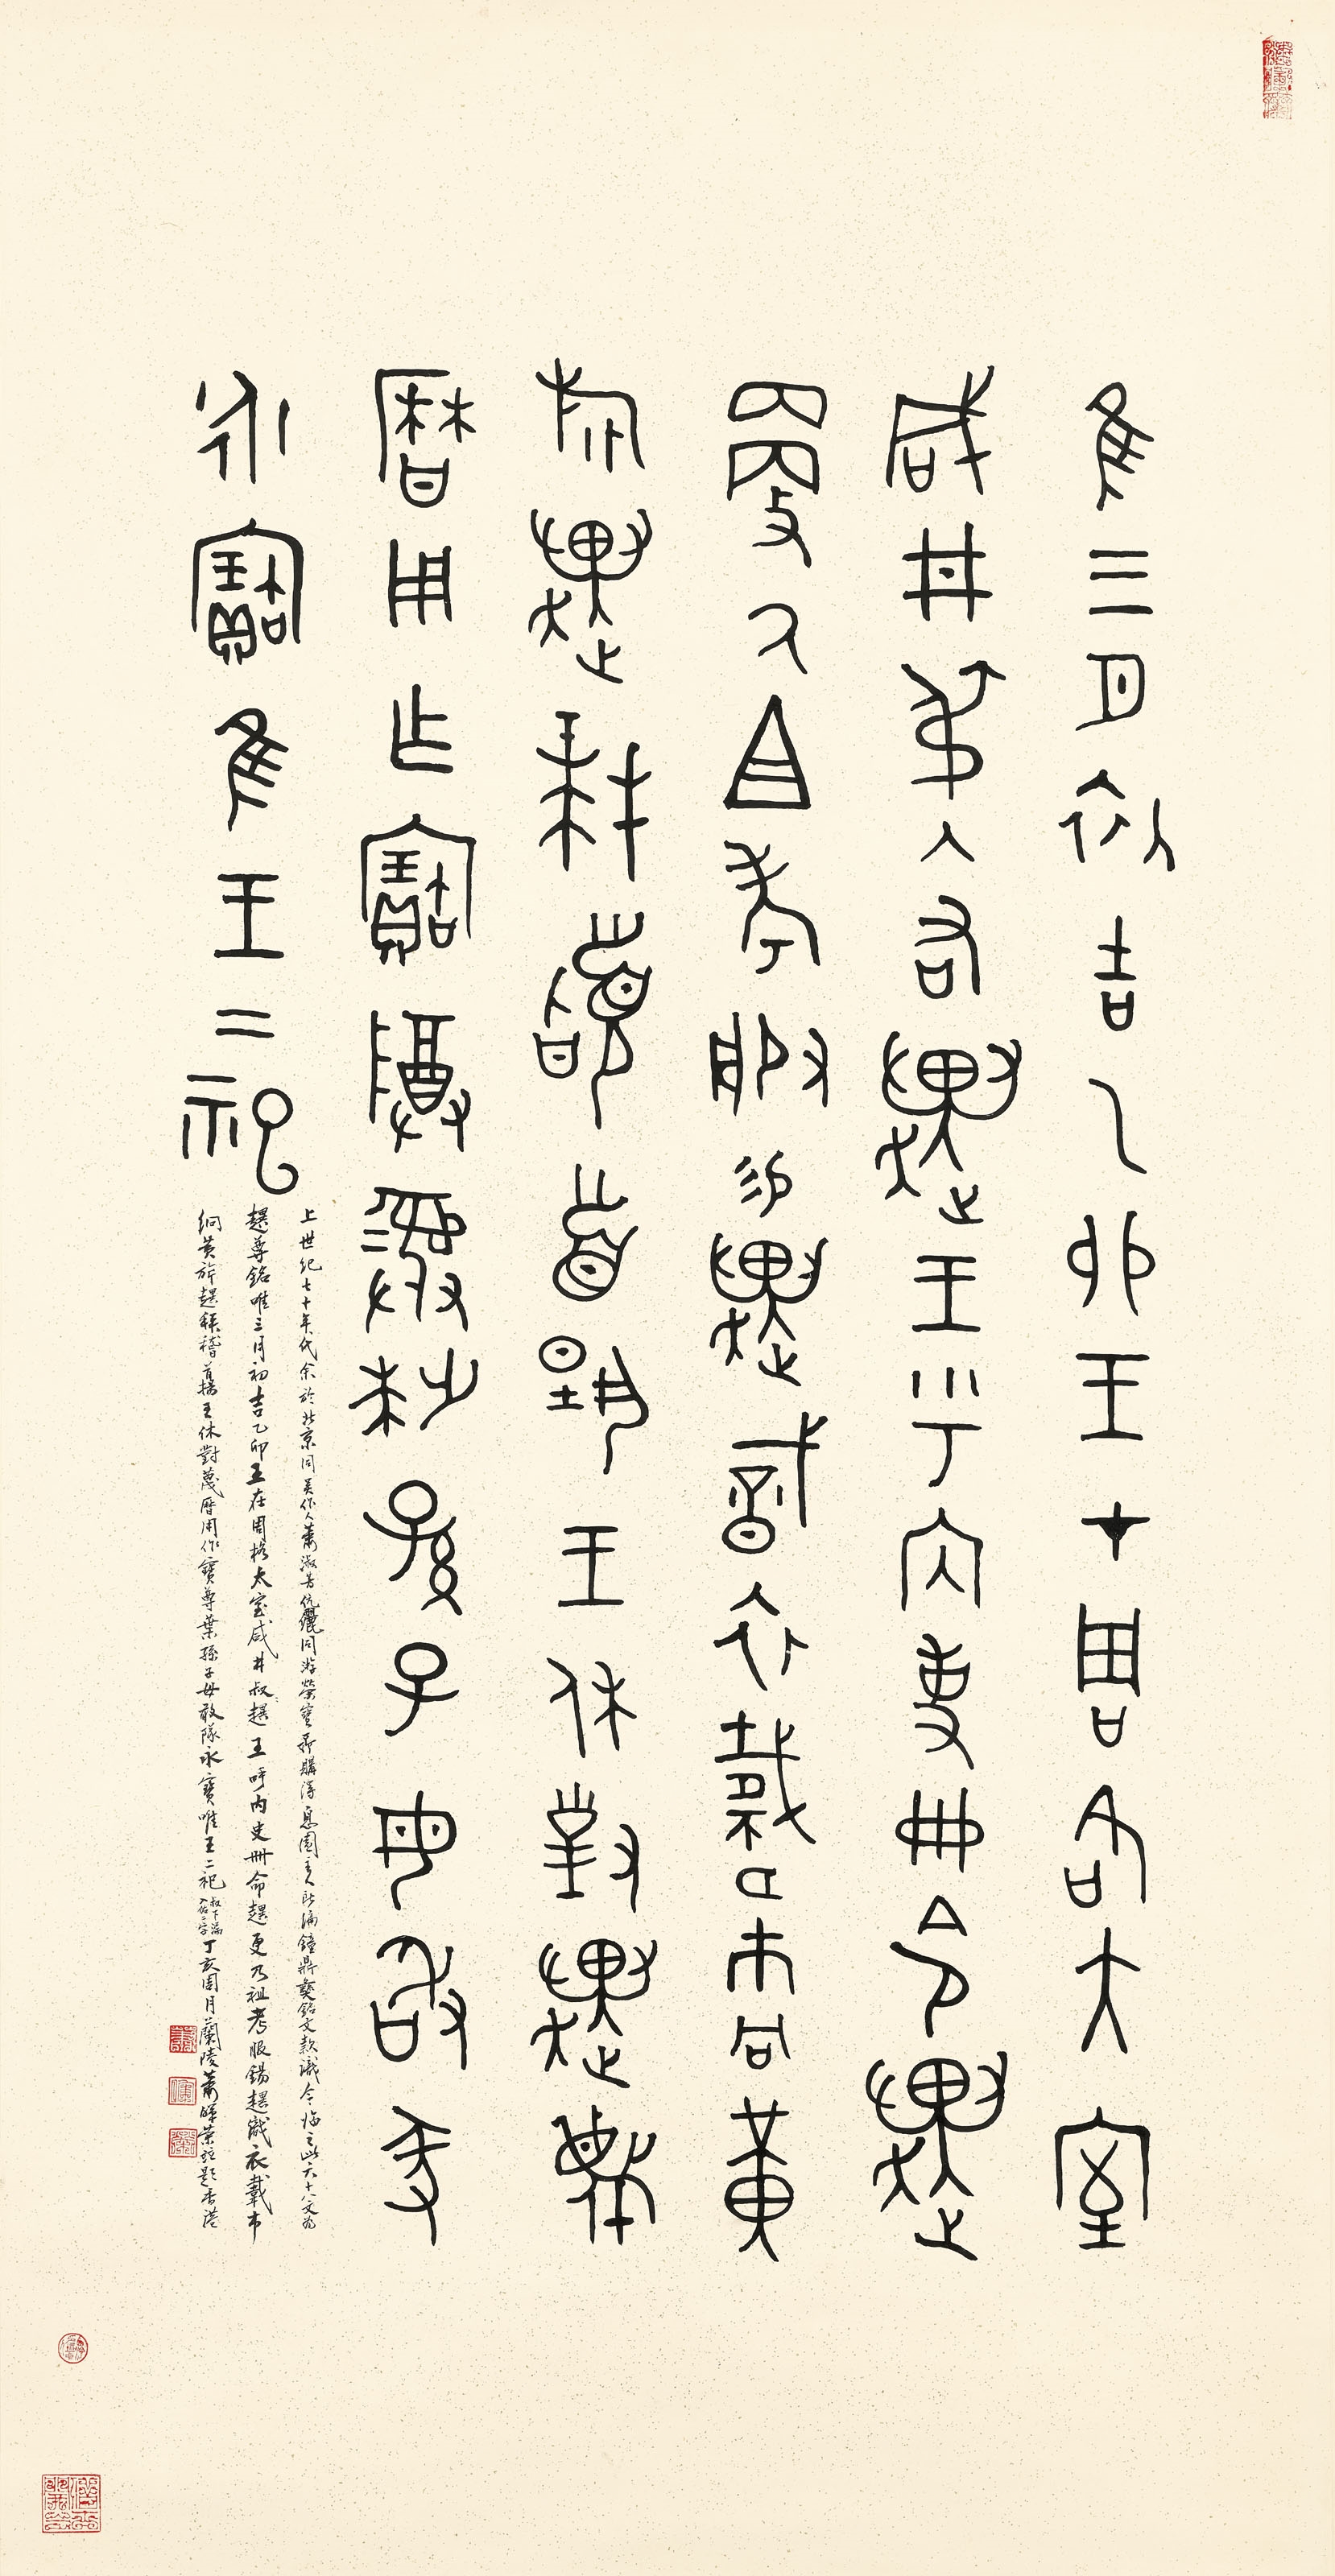 隹三月初吉乙卯王才周各大室
咸井弔入右趩王乎內史冊令趩
更氒且考服易趩戠衣載巿冋黃
旂趩拜𩒨首𩒨首揚王休對趩蔑
曆用乍寶尊彝枼孫子毋敢彖
永寶隹王二祀
上世紀七十年代余於北京同吳作人蕭淑芳伉儷同游榮寶齋購得息園主人所濡鐘鼎彝銘文款識今臨之此六十八文為
趩尊銘唯三月初吉乙卯王在周格太室咸井叔趩王呼內史冊命趩更乃祖考服錫趩戠衣載巿
絅黃旂趩拜稽首揚王休對蔑曆用作寶尊葉孫子毋敢隊永寶唯王二祀叔下漏入佑二字丁亥周月蘭陵蕭暉榮並題香港